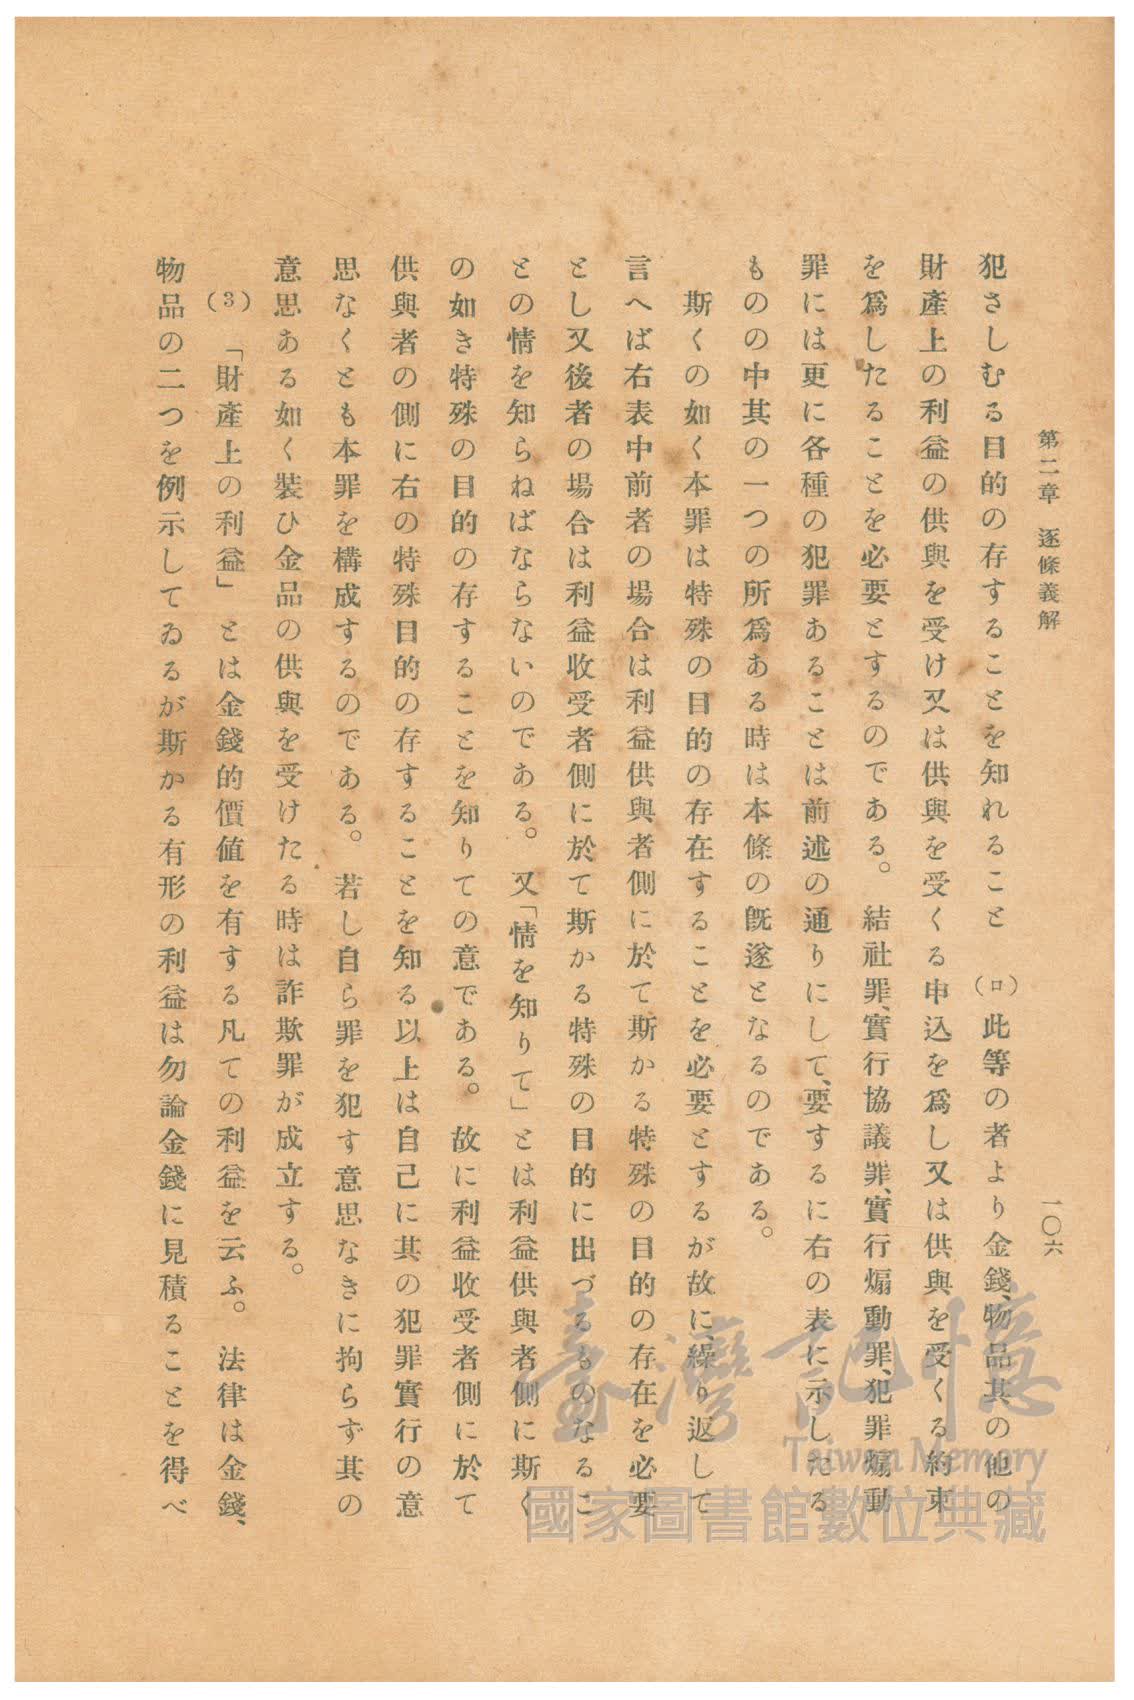 第二章　逐條義解
一〇六
犯さしむる目的の存することを知れること　(ロ)此等の者より金錢、物品其の他の
財產上の利益の供與を受け又は供與を受くる申込を爲し又は供與を受くる約束
を爲したることを必要とするのである。　結社罪、實行協議罪、實行煽動罪、犯罪煽動
罪には更に各種の犯罪あることは前述の通りにして、要するに右の表に示したる
ものの中其の一つの所爲ある時は本條の旣遂となるのである。
　斯くの如く本罪は特殊の目的の存在することを必要とするが故に、繰り返して
言へば右表中前者の場合は利益供與者側に於て斯かる特殊の目的の存在を必要
とし又後者の場合は利益收受者側に於て斯かる特殊の目的に出づるものなるこ
との情を知らねばならないのである。　又「情を知りて」とは利益供與者側に斯く
の如き特殊の目的の存することを知りての意である。　故に利益收受者側に於て
供與者の側に右の特殊目的の存することを知る以上は自己に其の犯罪實行の意
思なくとも本罪を構成するのである。　若し自ら罪を犯す意思なきに拘らず其の
意思ある如く裝ひ金品の供與を受けたる時は詐欺罪が成立する。
　(3)　「財產上の利益」　とは金錢的價値を有する凡ての利益を云ふ。　法律は金錢、
物品の二つを例示してゐるが斯かる有形の利益は勿論金錢に見積ることを得べ
臺灣記憶
Taiwan Memory
國家圖書館數位典藏